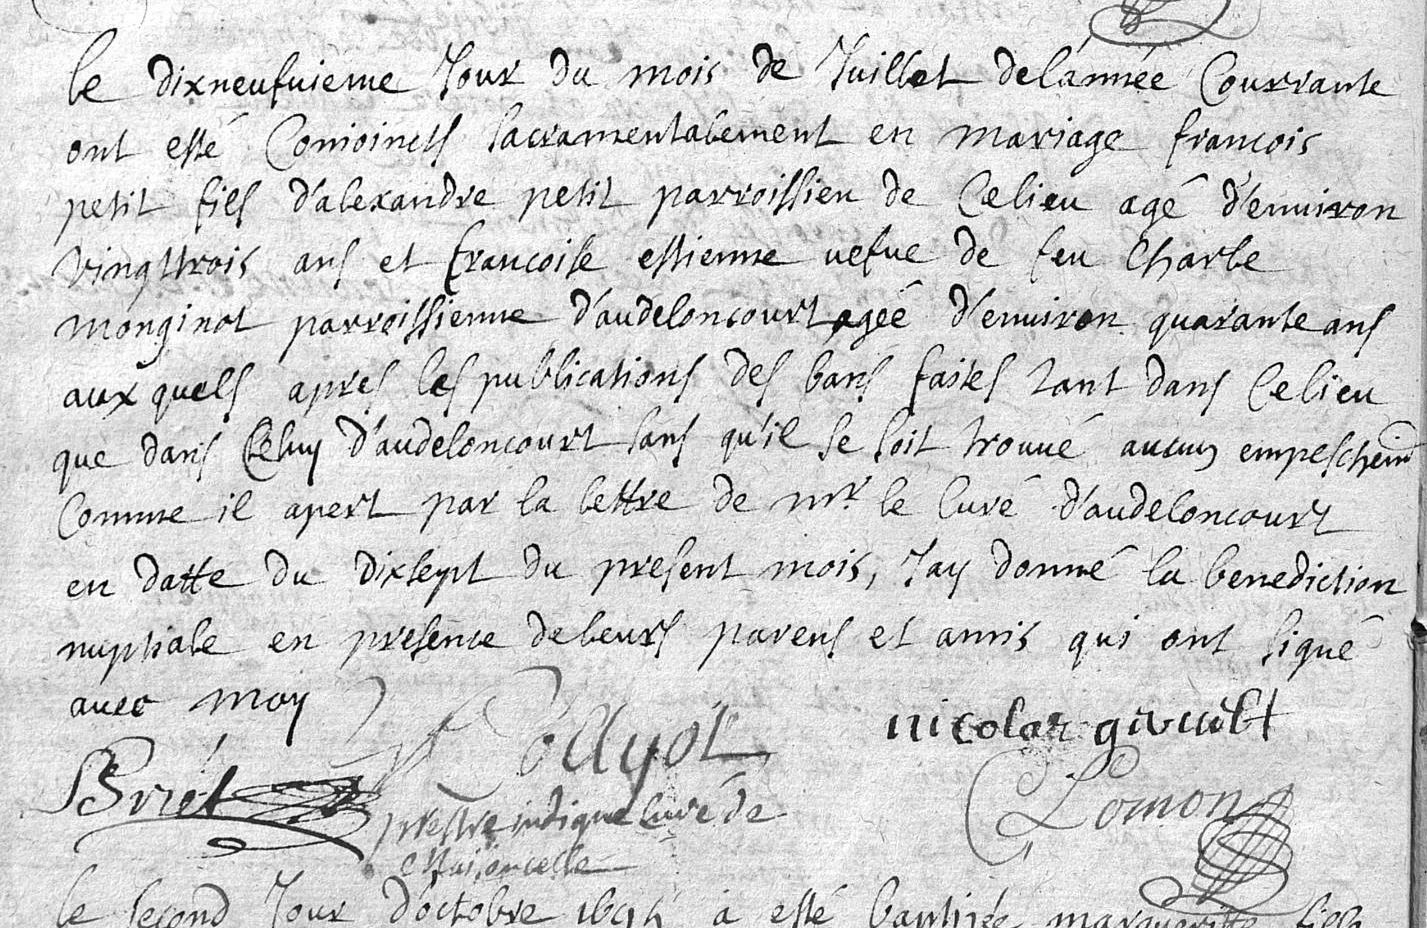 le dixneufuieme Jour du mois de Juillet de lánnée Courrante
ont esté Conioincts sacramentalement en mariage francois
petit fils d'alexandre petit parroissien de Celieu agé d'enuiron
vingttrois ans et francoise estienne uefue de feu Charle
monginot parroissienne d'audeloncourt agéé d'enuiron quarante ans
aux quels apres les publications des bans faites tant dans Celieu
que dans Celuy d'audeloncourt sans qu'il se soit trouué aucun empeschemt
Comme il apert par la lettre de mr. le Curé d'audeloncourt
en datte du dixsept du present mois, Jay donné la benediction
nuptiale en presence de leurs parens et amis qui ont signé
auec moy
nicolas girault
prestre indigne Curé de
Lomon
le second Jour d'octobre a esté baptisée margueritte fille